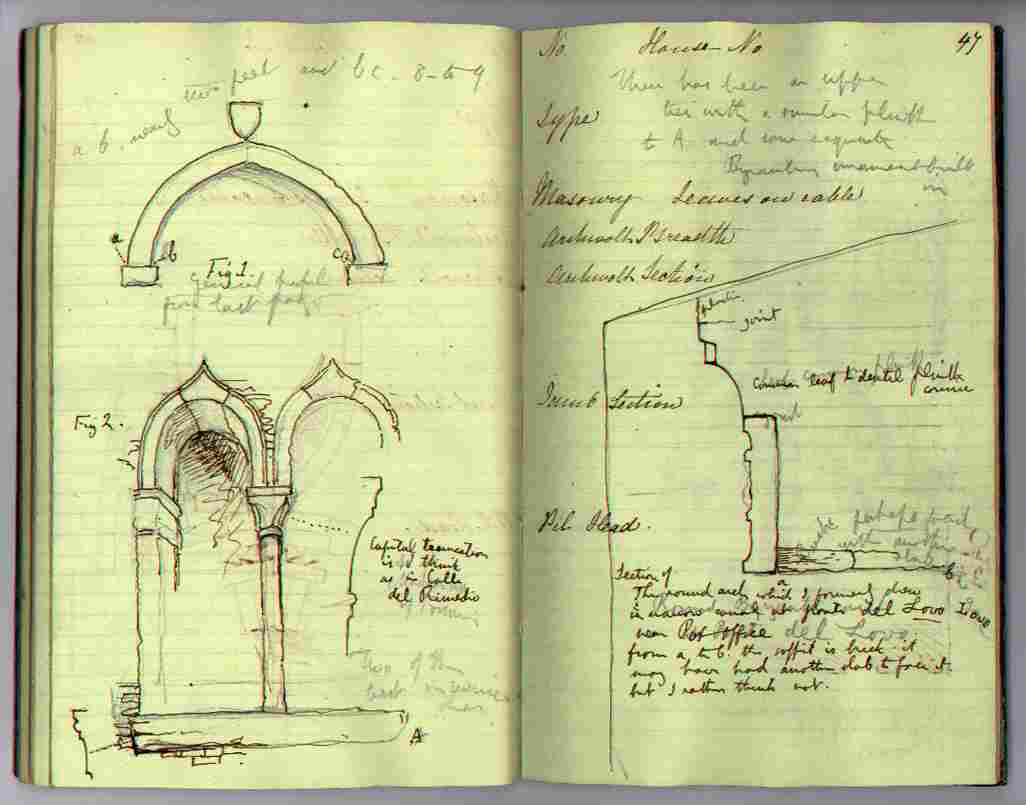 a b. nearly two feet and bc. 8 to 9
a
b
c
Fig 1.
general
from last page
Fig 2.
Capital truncation
is I think
as in Calle
del Rimedio
Two of the
A
No House No 47
There has been an upper
Type
tier with a similar plinth
to A and some exquisite
Byzantine ornament built
in
Masonry Leaves on cable
Archivolt Breadth
Archivolt Section
plinth
joint
leaf & dentil plinth
Jamb Section
Pil Head.
perhaps
with another
b
Section of
The round arch which I formerly drew
in narrow canal at ponte del Lovo
near Post office del Lovo
from a to b. the soffit is brick. it
may have had another slab to face it
but I rather think not.